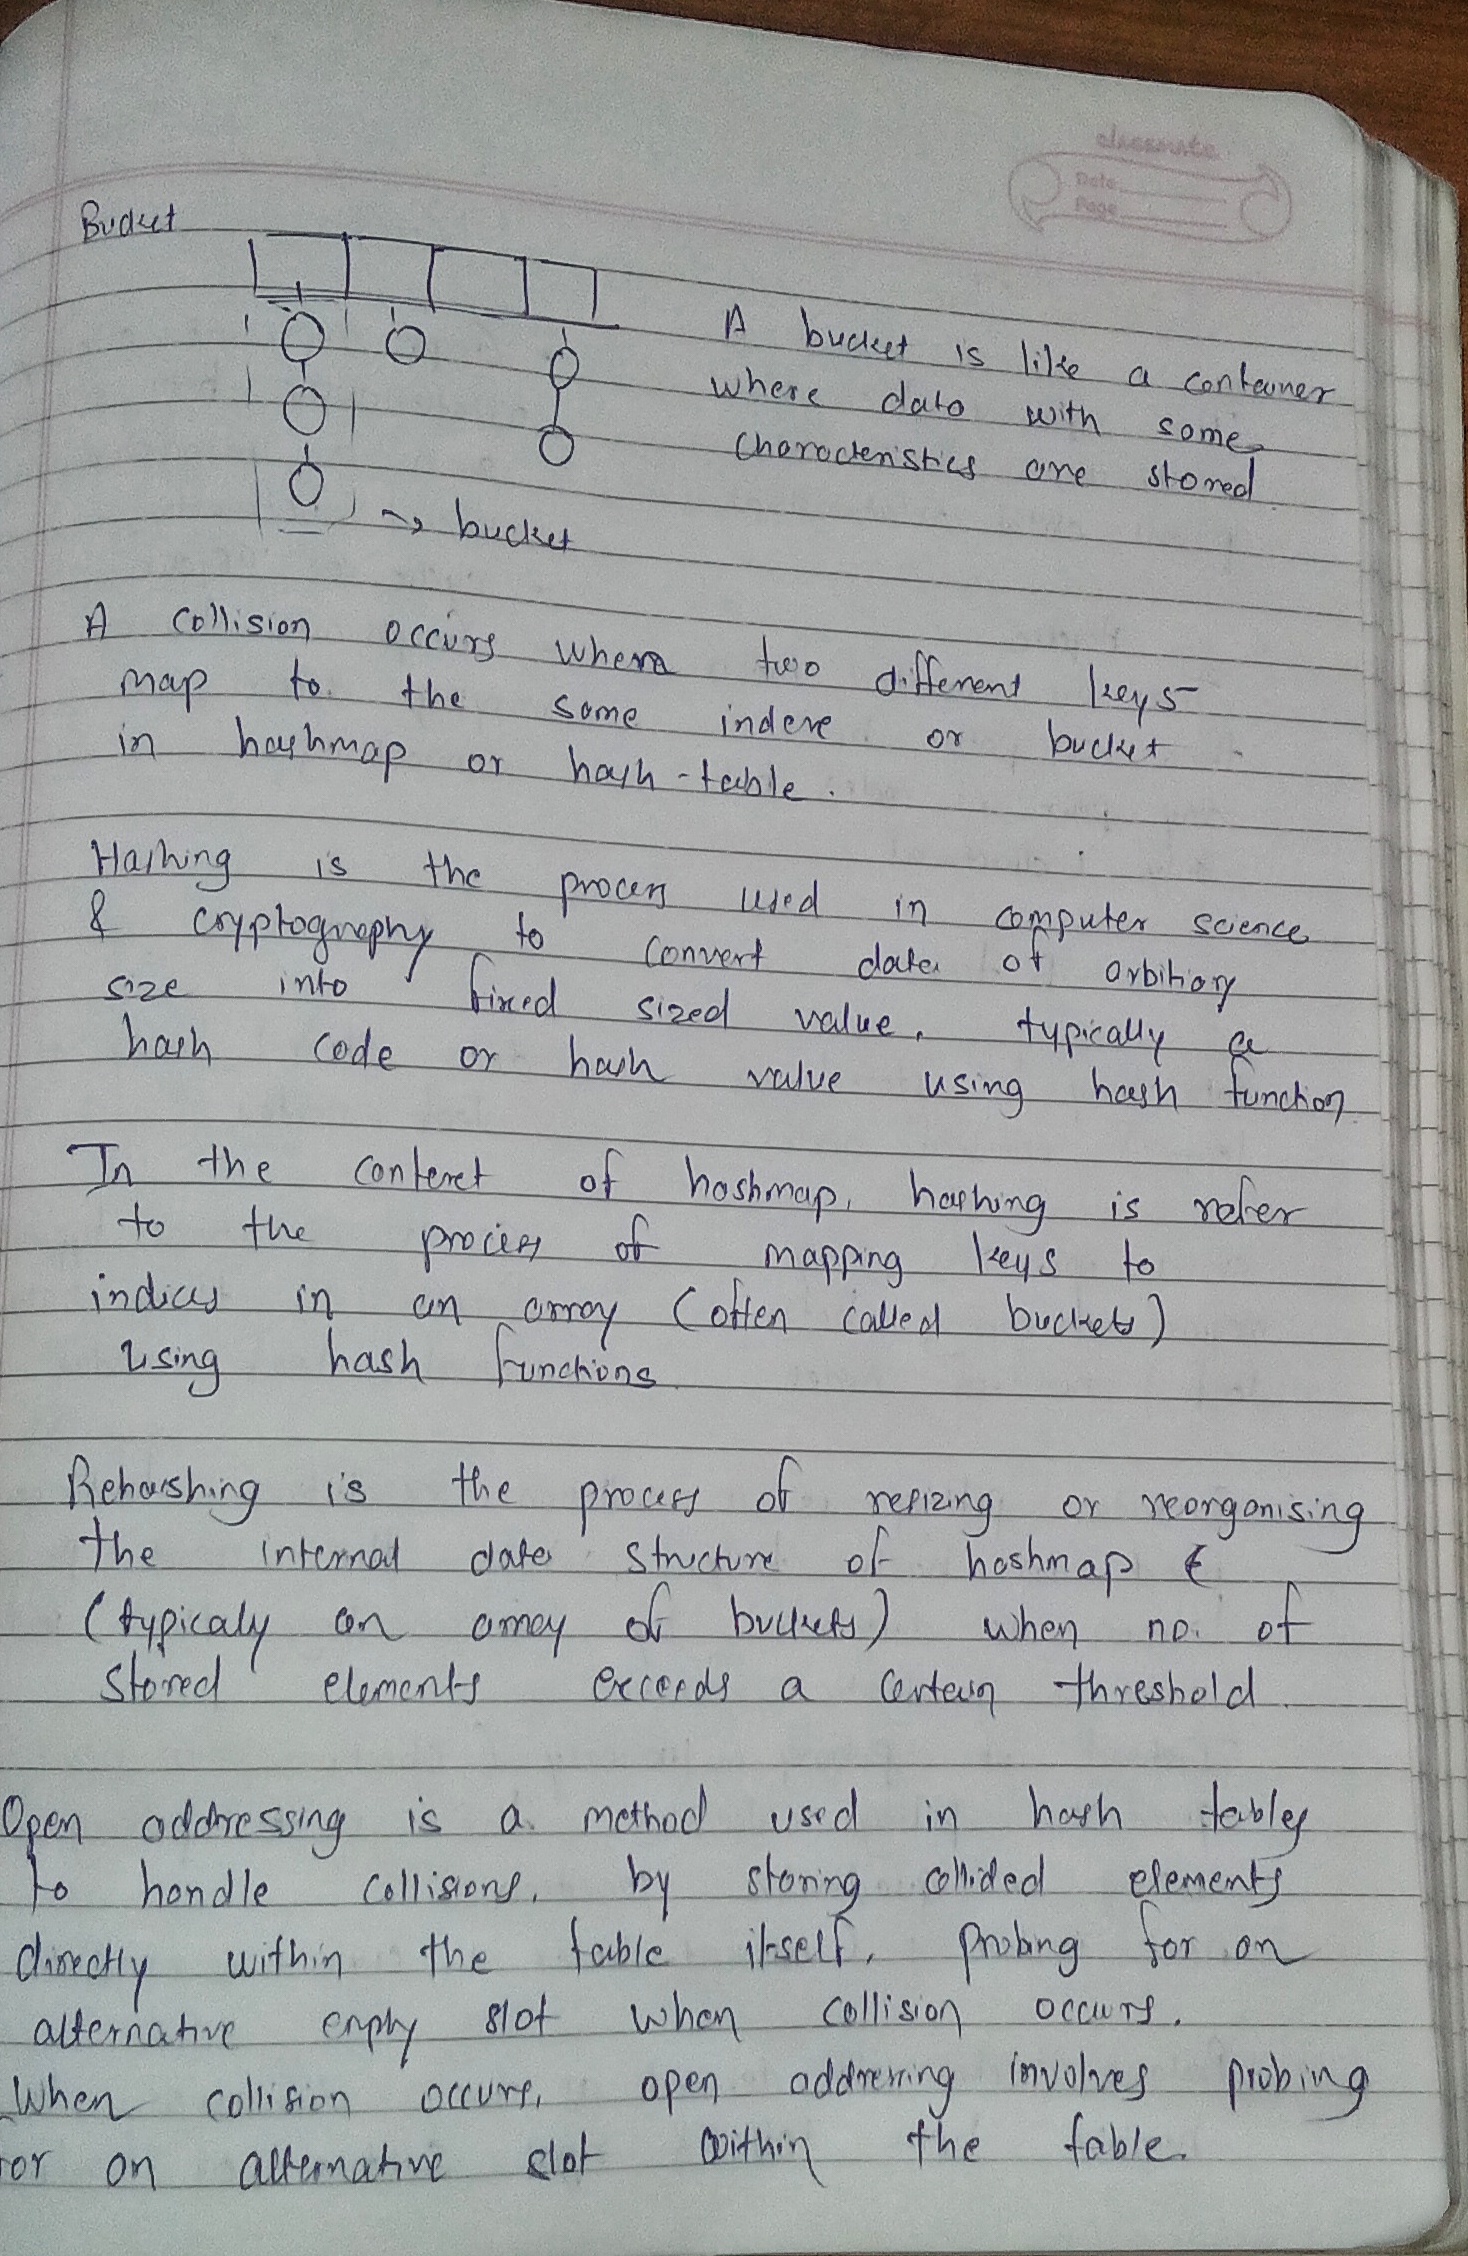 classmate
Date
Page
Bucket
A bucket is like a container
where data with some
characteristics are stored
→ bucket
A collision occurs where two different keys
map to the same index or bucket
in hashmap or hash-table.
Hashing is the process used in computer science
& cryptography to convert data of arbitiary
size into fixed sized value, typically a
hash code or hash value using hash function
In the context of hashmap, hashing is refer
to the process of mapping keys to
indices in an array (often called buckets)
using hash functions
Rehashing is the process of resizing or reorganising
the internal data structure of hashmap
(typicaly an array of buckets) when no. of
stored elements exceeds a certain threshold.
Open addressing is a method used in hash tables
to handle collisions, by storing collided elements
directly within the table itself, probing for an
alternative empty slot when collision occurs.
When collision occurs, open addressing involves probing
for an alternative slot within the table.